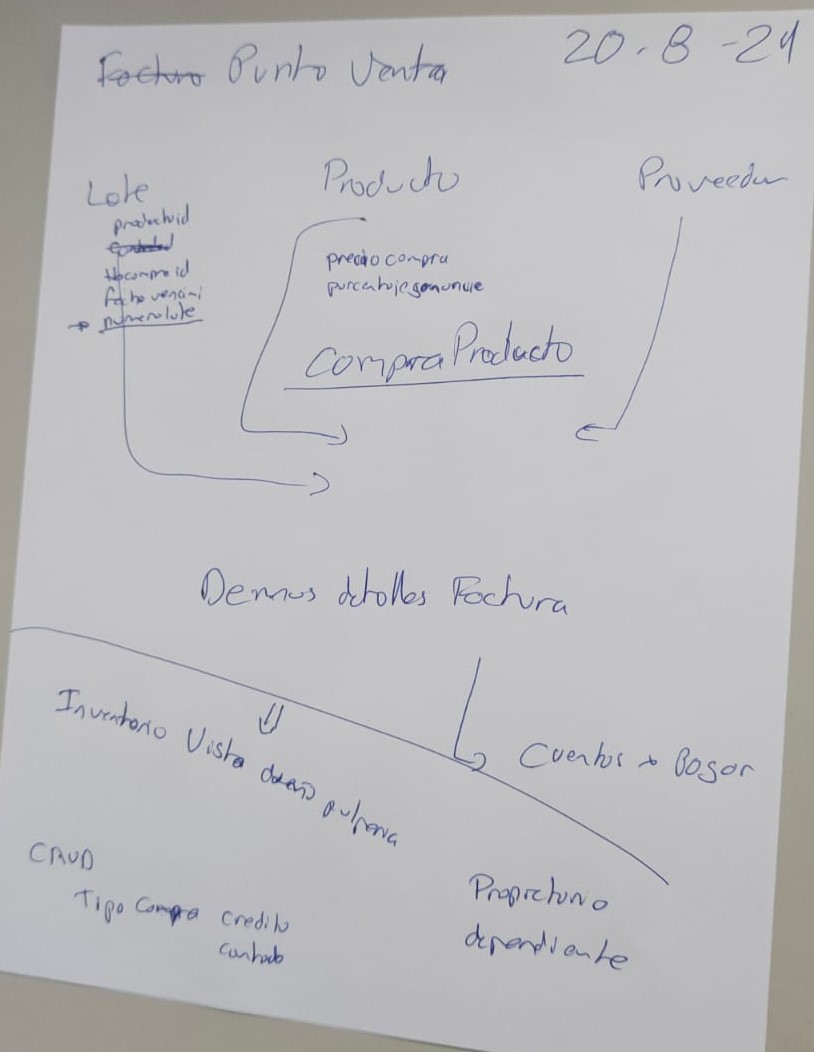 Factura Punto Venta 20.8-24
Lote
productoid
compra id
fecha vencimi
→ numerolote
Producto
precio compra
porcentajeganancie
CompraProducto
Proveedor
Demas detalles Factura
Inventario Vista dueño pulperia
Cuentas x Pagar
CRUD
Tipo Compra credito
contado
Propietario
dependiente